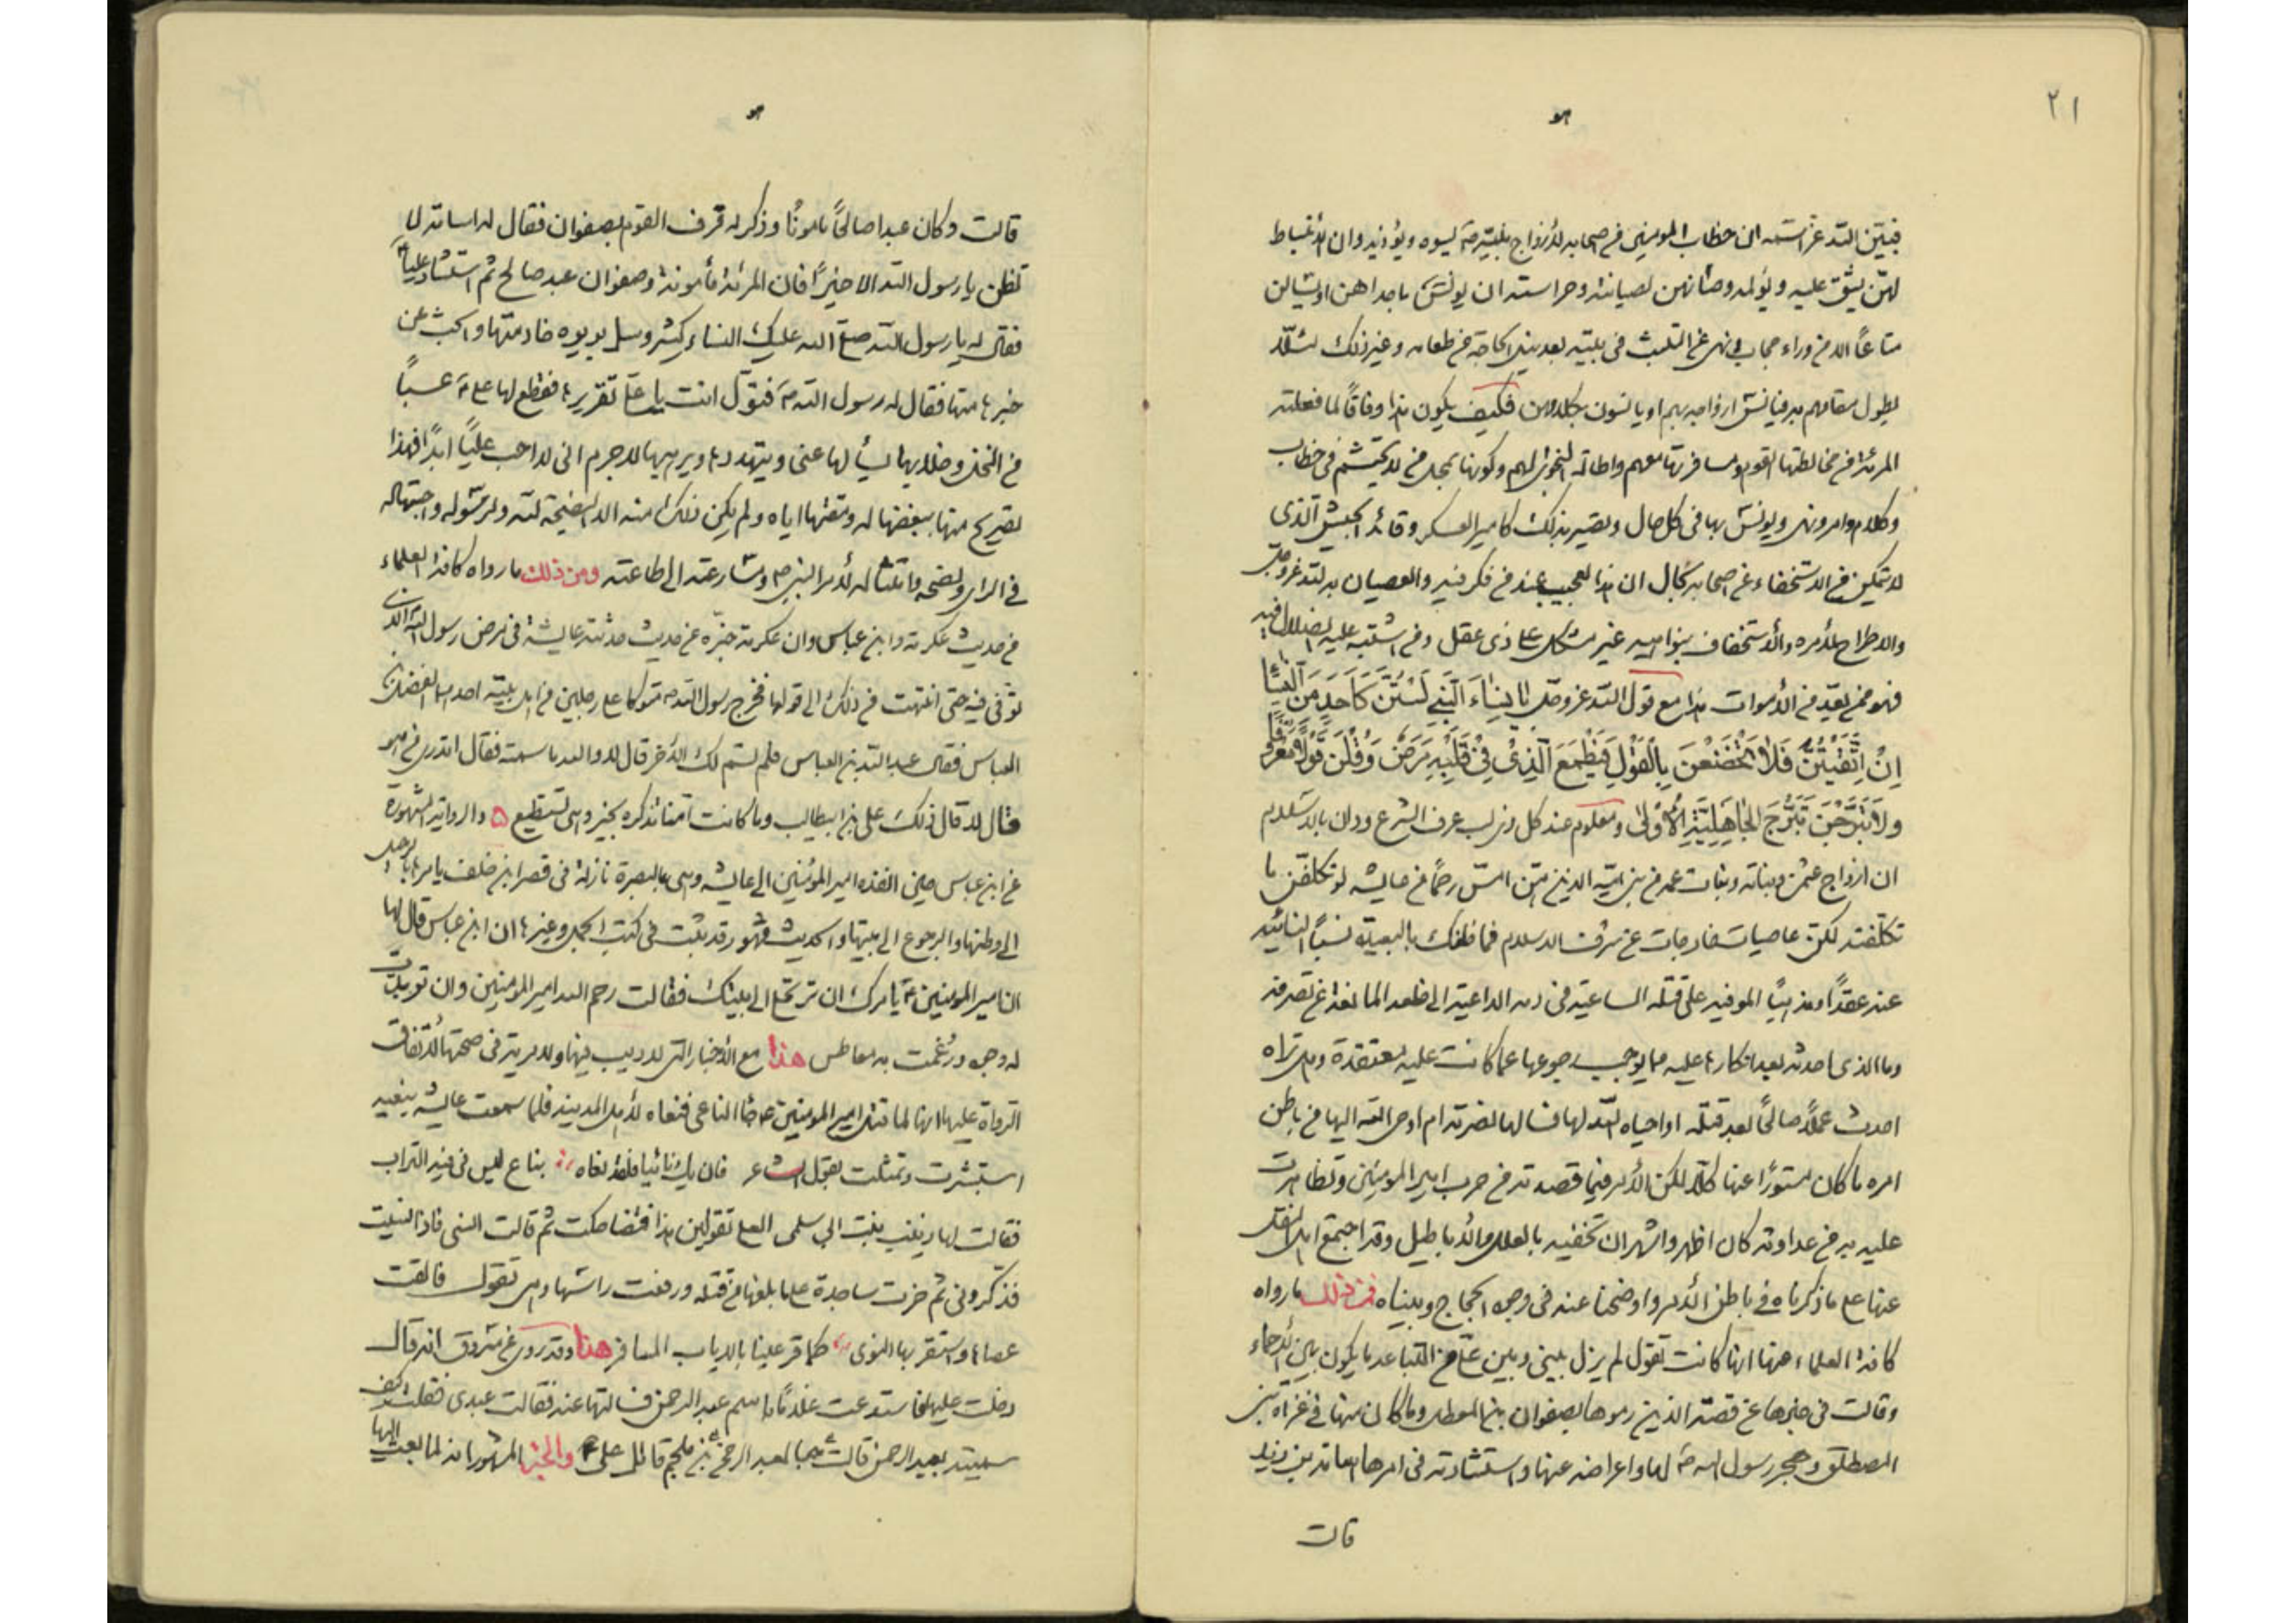 ٢١
هو
فبيّن الله عز اسمه ان خطاب المؤمنين من اصحابه لأزواج نبيّه مما يسوه ويؤذيه وان الأنبساط
لهن يشق عليه ويؤلمه وصانهن لصيانته وحراسته ان يونس باحداهن او يسالن
متاعاً الا من وراء حجاب ونهى عن اللبث فى بيته بعد نيل الحاجة من طعامه وغير ذلك لئلّا
يطول مقامهم فيه فيانس ازواجه بهم او يانسون بكلامهن فكيف يكون هذا وفاقاً لما فعلته
المرئة من مخالطتها القوم ومسافرتها معهم واطالة النجوى لهم وكونها بمحل من لا يحتشم فى خطاب
وكلام وامر ونهى ويونس بها فى كل حال وتصير بذلك كامير العسكر وقائد الجيش الذى
لا يتمكن من الاستخفاء عن اصحابه بحال ان هذا لعجيب عند من فكر فيه والعصيان به لله عز وجل
والاطراح لأمره والأستخفاف بنواهيه غير مشكل على ذى عقل ومن اشتبه عليه الضلال فيه
فهو ممن يعد فى الأموات هذا مع قول الله عز وجل يا نِسَاءَ النَّبِي لَسْتُنَّ كَاَحَدٍ مِنَ النِّسَاءِ
اِنْ اتَّقَيْتُنَّ فَلَا تَخْضَعْنَ بِالْقَوْلِ فَيَطْمَعَ الَّذِىْ فِىْ قَلْبِهِ مَرَضٌ وَقُلْنَ قَوْلاً مَعْرُوفاً
ولَا تَبَرَّجْنَ تَبَرُّجَ الْجَاهِلِيَّةِ الْأُوْلىٰ ومعلوم عند كل ذى لب عرف الشرع ودان بالاسلام
ان ازواج عثمن وبناته وبنات عمه من بنى اميّة الذين هن امسّ رحماً من عايشه لو تكلّفن ما
تكلّفته لكنّ عاصيات خارجات عن شرف الاسلام فما ظنك بالبعيدة نسباً النائية
عنه عقداً ومذهباً الموفية على قتله الساعية فى دمه الداعية الى خلعه المانعة عن تصرفه
وما الذى احدثه بعد انكارها عليه مما يوجب رجوعها عما كانت عليه معتقدة وهل تراه
احدث عملاً صالحاً بعد قتله او احياه الله لها فسالها نصرته ام اوحى الله اليها من باطن
امره ما كان مستوراً عنها كلا لكن الأمر فيما قصدته من حرب امير المومنين وتظاهرت
عليه به من عداوته كان اظهر واشهر ان تخفيه بالعلل والأباطيل وقد اجتمع اهل النقل
عنها على ما ذكرناه فى باطن الأمر واوضحنا عنه فى وجه الحجاج وبيناه فمن ذلك ما رواه
كافة العلماء عنها انها كانت تقول لم يزل بينى وبين علّى من التباعد ما يكون بين الأحماء
وقالت فى خبرها عن قصة الذين رموها بصفوان بن المعطل وما كان منها فى غزاة بنى
المصطلق وهجر رسول الله ص لها واعراضه عنها واستشارته فى امرها اسامة بن زيد
قالت
هو
قالت وكان عبدا صالحاً مامونًا وذكر له قرف القوم بصفوان فقال له اسامة لا
تظن يا رسول الله الا خيراً فان المرئة مأمونة وصفوان عبد صالح ثم استشار علياً
فقال له يا رسول الله صلى الله عليك النساء كثير وسل بريره خادمتها وابحث عن
خبرها منها فقال له رسول الله ص فتول انت يا على تقريرها فقطع لها على ع عسباً
من النخل وخلا بها يسألها عنى ويتهددها ويرهبها لا جرم انى لا احب عليّاً ابداً فهذا
تصريح منها ببغضها له ومقتها اياه ولم يكن ذلك منه الا النصيحة لله ولرسوله واجتهاله
فى الراى ونصحه وامتثاله لأمر النبى ص ومسارعته الى طاعته ومن ذلك ما رواه كافة العلماء
من حديث عكرمة وابن عباس وان عكرمة خبّره عن حديث حدثته عايشة فى مرض رسول الله الذى
توّفى فيه حتى انتهت من ذلك الى قولها فخرج رسول الله ص متوكا على رجلين من اهل بيته احدهما الفضل بن
العباس فقال عبد الله بن العباس فلم تسم لك الأخر قال لا والله ما سمته فقال اتدرى من هو
قال لا قال ذلك على بن ابيطالب وما كانت امّنا تذكره بخير وهى تستطيع ۵ والرواية المشهورة
عن ابن عباس حين انفذه امير المؤمنين الى عايشه وهى بالبصرة نازلة فى قصر ابن خلف يامرها بالرحيل
الى وطنها والرجوع الى بيتها والحديث مشهور قد ثبت فى كتب الجمل وغيرها ان ابن عباس قال لها
ان امير المومنين ع يامرك ان ترتحلى الى بيتك فقالت رحم الله امير المومنين وان تربدت
له وجوه ورُغمت به معاطس هذا مع الأخبار التى لا ريب فيها ولا مرية فى صحتها لأتفاق
الرواة عليها انها لما قتل امير المومنين ع جاء الناعى فنعاه لأهل المدينة فلما سمعت عايشه بنعيه
استبشرت وتمثلت بقول الشاعر فان يك نائيا فلقد نعاه بناع ليس فى فيه التراب
فقالت لها زينب بنت ابى سلمى العلى تقولين هذا فتضاحكت ثم قالت انسى فاذا نسيت
فذكرونى ثم خرت ساجدة على ما بلغها من قتله ورفعت راسها وهى تقول فالقت
عصاها واستقر بها النوى كما قر عينا بالاياب المسافر هذا وقد روى عن مسروق انه قال
دخلت عليها فاستدعت غلاماً باسم عبد الرحمن فسالتها عنه فقالت عبدى فقلت كيف
سميته بعبد الرحمن قالت حبا لعبد الرحمن بن ملجم قاتل على ع والخبر المشهور انه لما بعث اليها